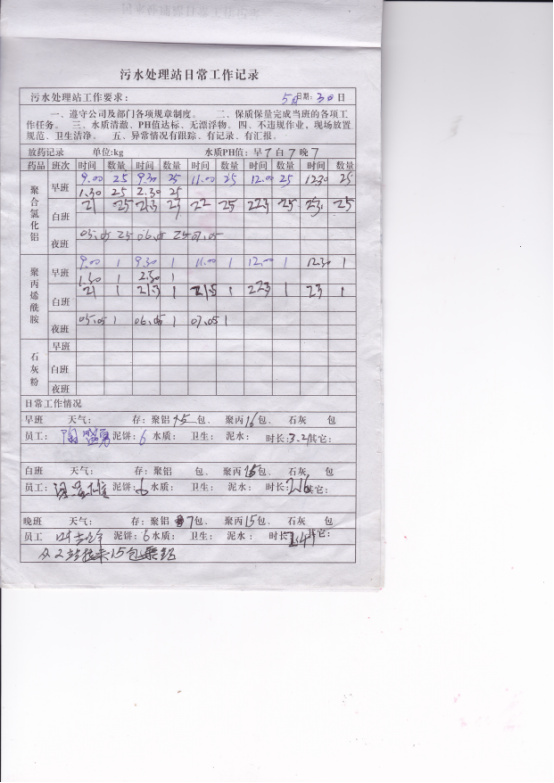 污水处理站日常工作记录
污水处理站工作要求： 5月 日期：30日
一、遵守公司及部门各项规章制度。 二、保质保量完成当班的各项工
作任务。 三、水质清澈、PH值达标、无漂浮物。四、不违规作业，现场放置
规范、卫生洁净。 五、异常情况有跟踪、有记录、有汇报。
放药记录 单位:kg 水质PH值：早7白7晚7
药品 班次 时间 数量 时间 数量 时间 数量 时间 数量 时间 数量
聚合氯化铝
早班 9.00 25 9.30 25 11.00 25 12.00 25 1230 25
1.30 25 2.30 25
白班 21 25 213 25 22 25 223 25 23 25
夜班 05.05 25 06.05 25 07.05
聚丙烯酰胺
早班 9.00 1 9.30 1 11.00 1 12.00 1 12.30 1
1.30 1 2.30 1
白班 21 1 213 1 1 223 1 23 1
夜班 05.05 1 06.05 1 07.05 1
石灰粉
早班
白班
夜班
日常工作情况
早班 天气： 存：聚铝 包、 聚丙16包、 石灰 包
员工： 泥饼：6 水质： 卫生： 泥水： 时长:3.2其它：
白班 天气： 存：聚铝 包、 聚丙 包、 石灰 包
员工： 泥饼：6 水质： 卫生： 泥水： 时长： 其它：
晚班 天气： 存：聚铝 7包、 聚丙15包、 石灰 包
员工 泥饼：6 水质： 卫生： 泥水： 时长： 其它：
从2 15包聚铝